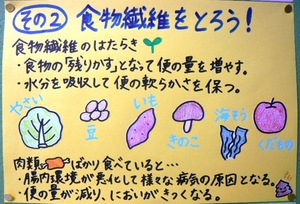 その2 食物繊維をとろう!
食物繊維のはたらき
・食物の「残りかす」となって便の量を増やす。
・水分を吸収して便の軟らかさを保つ。
やさい
豆
いも
きのこ
海そう
くだもの
肉類ばかり食べていると…
・腸内環境が悪化して様々な病気の原因となる。
・便の量が減り、においがきつくなる。